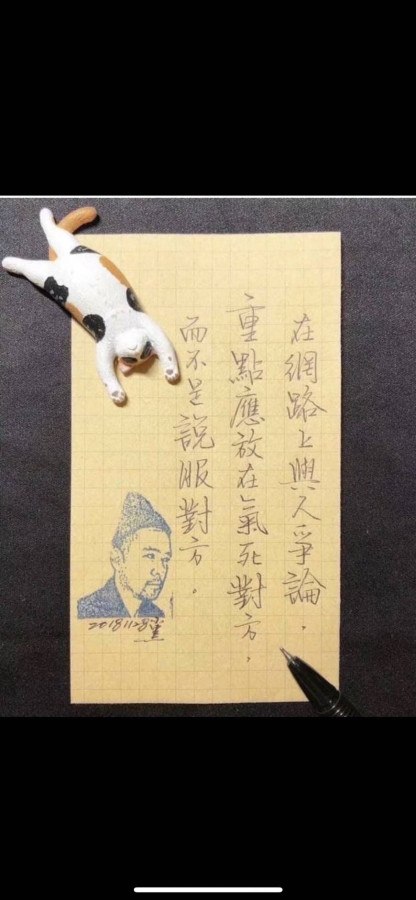 在網路上與人爭論，
重點應放在氣死對方，
而不是說服對方。
20181128